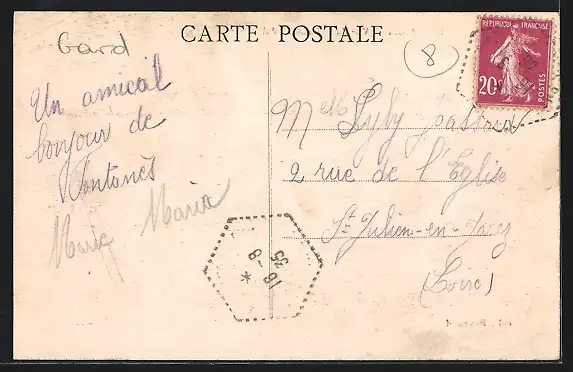 Gard
CARTE POSTALE
8
REPUBLIQUE FRANÇAISE
20c
POSTES
Un amical
bonjour de
Fontanès
Marie Maria
Melle Lyly
2 rue de l'Eglise
St Julien-en-Jarez
(Loire)
18-8
35
*